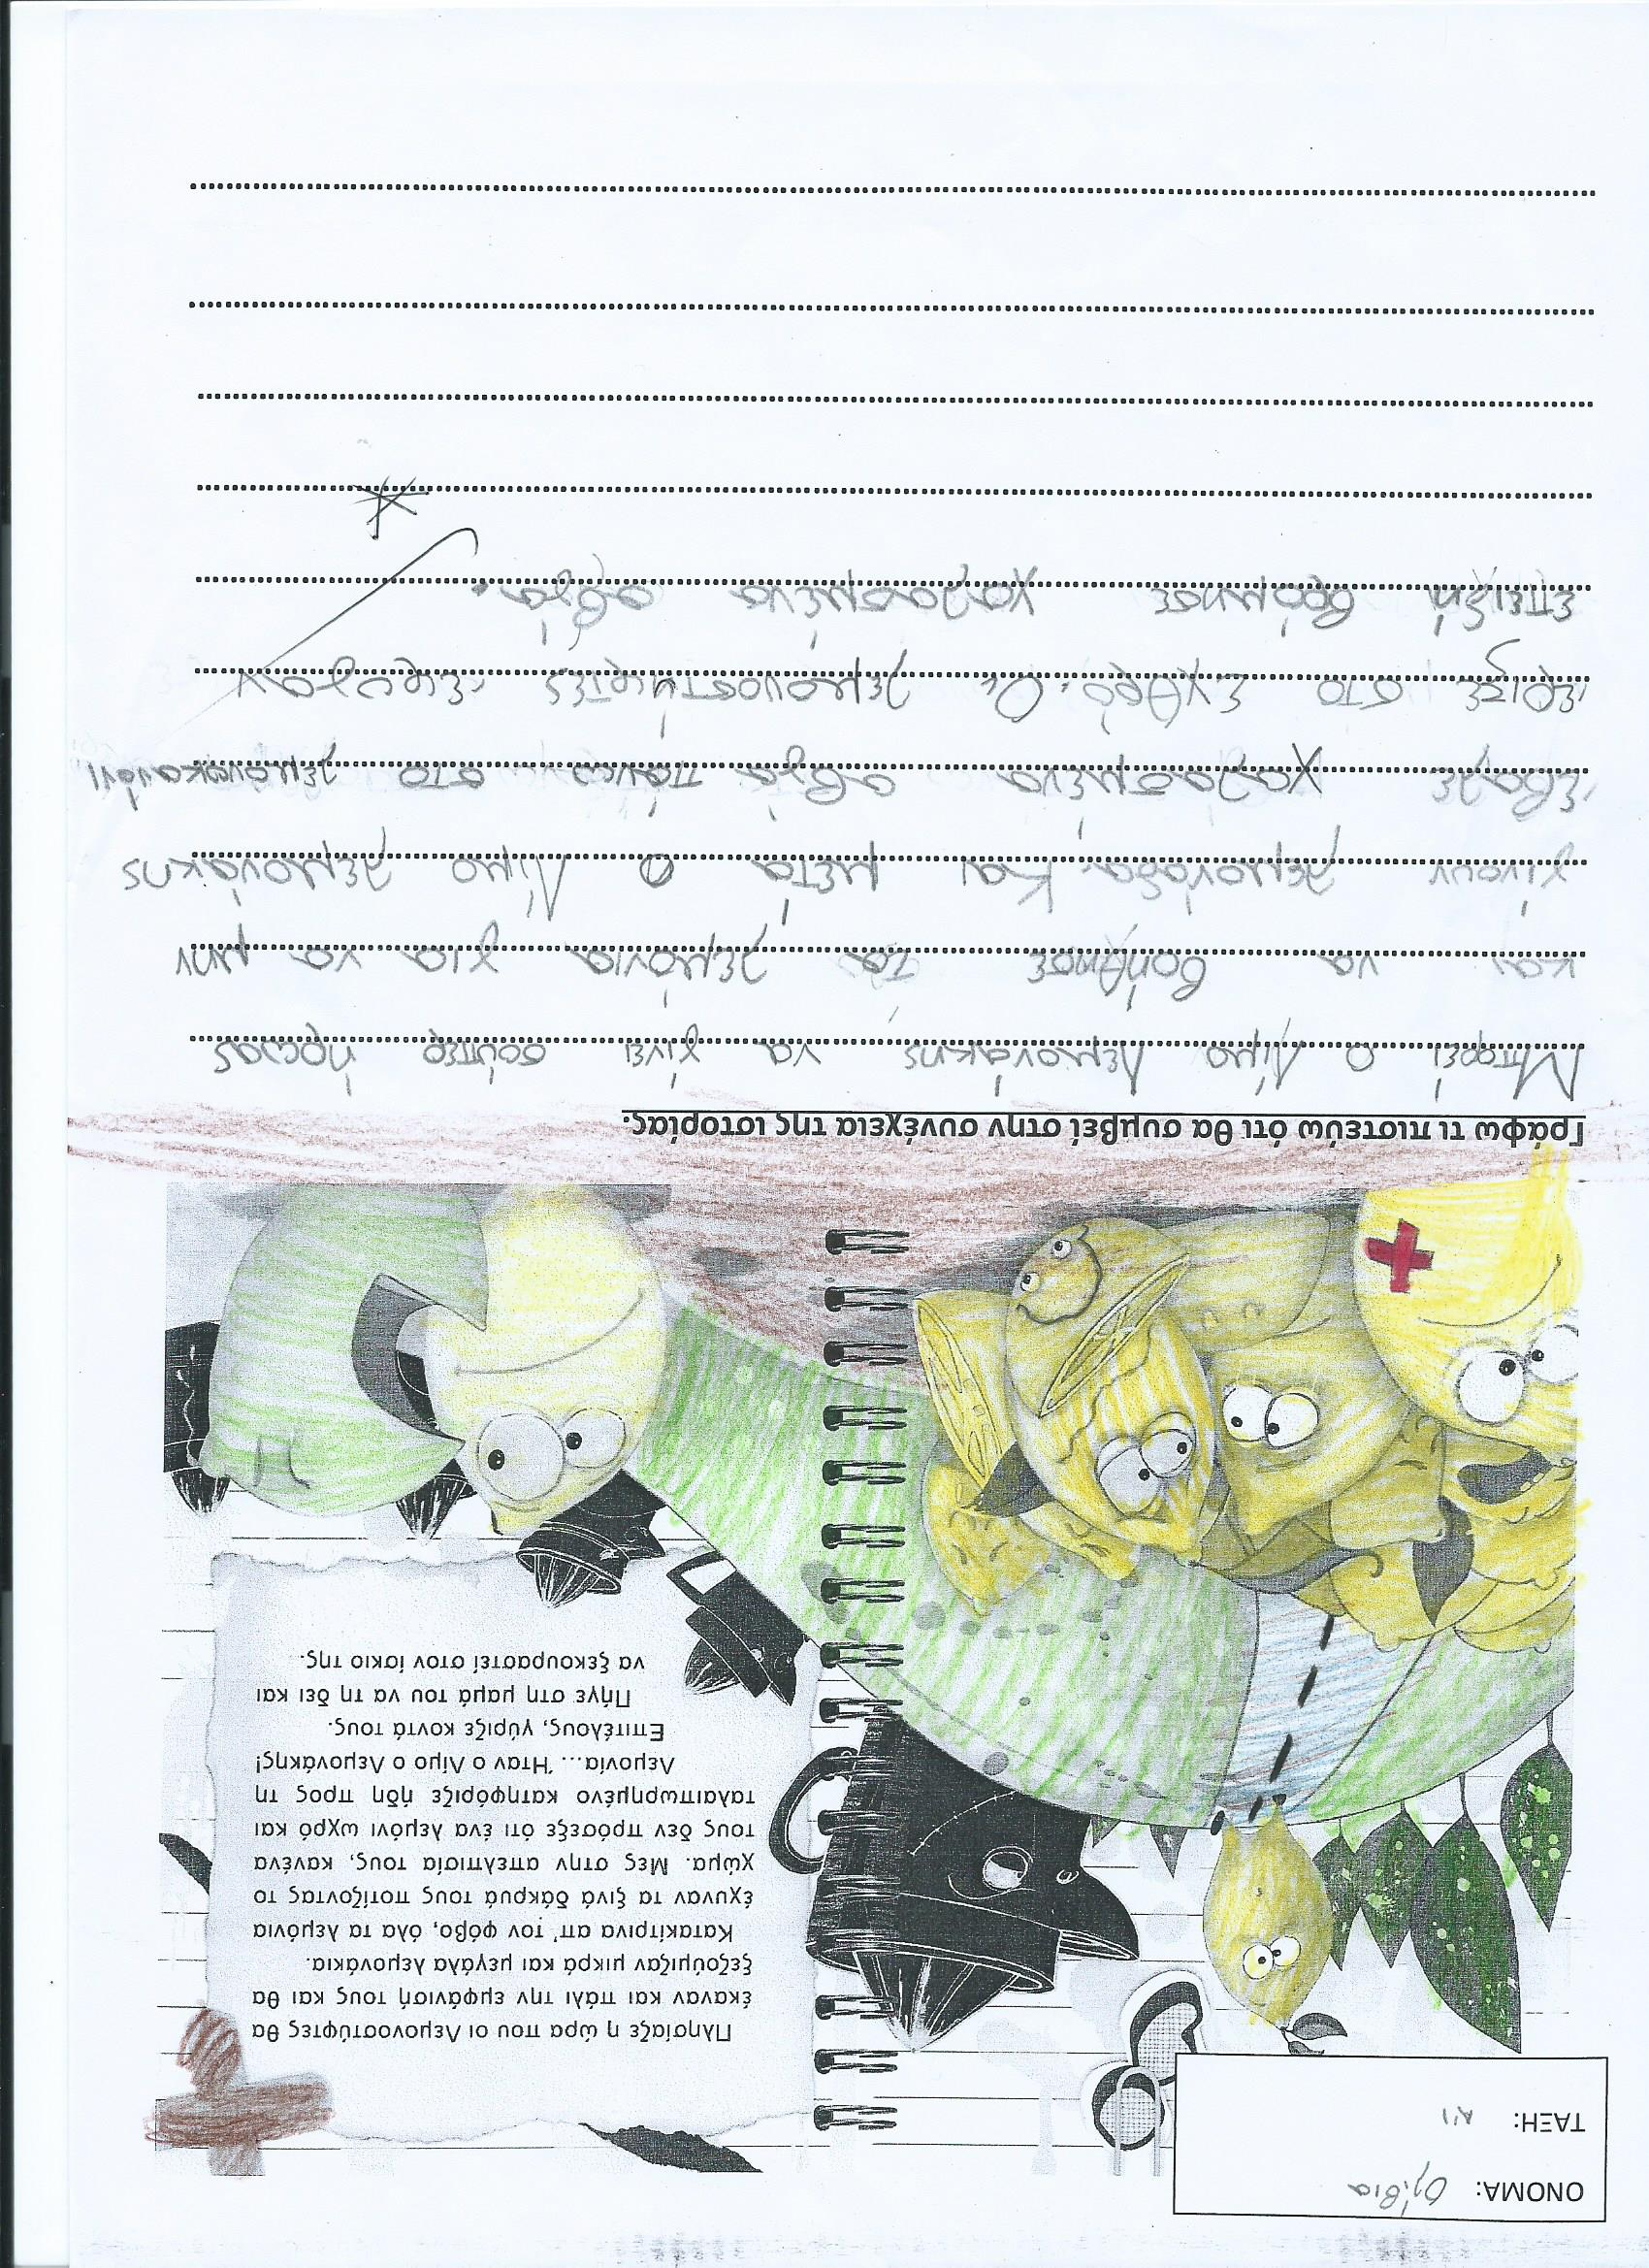 ΟΝΟΜΑ: Ολίβια
ΤΑΞΗ: Α'1
Πλησίαζε η ώρα που οι Λεμονοστύφτες θα
έκαναν και πάλι την εμφάνισή τους και θα
ξεζούμιζαν μικρά και μεγάλα λεμονάκια.
Κατακίτρινα απ' τον φόβο, όλα τα λεμόνια
έχυναν τα ξινά δάκρυά τους ποτίζοντας το
χώμα. Μες στην απελπισία τους, κανένα
τους δεν πρόσεξε ότι ένα λεμόνι ωχρό και
ταλαιπωρημένο κατηφόριζε ήδη προς τη
Λεμονία... Ήταν ο Λίμο ο Λεμονάκης!
Επιτέλους, γύριζε κοντά τους.
Πήγε στη μαμά του να τη δει και
να ξεκουραστεί στον ίσκιο της.
Γράφω τι πιστεύω ότι θα συμβεί στην συνέχεια της ιστορίας.
Μπορεί ο Λίμο Λεμονάκης να γίνει σούπερ ήρωας
και να βοηθήσε τα λεμόνια για να μην
γίνουν λεμονάδα. Και μετά ο Λίμο λεμονάκης
έβαλε χαλασμένα αβγά πάνω στο λεμονοκανόνι
έριξε στο εχθρό. Οι λεμονοστήφτες έφυγαν
επειδή βρόμησε χαλασμένα αβγά.